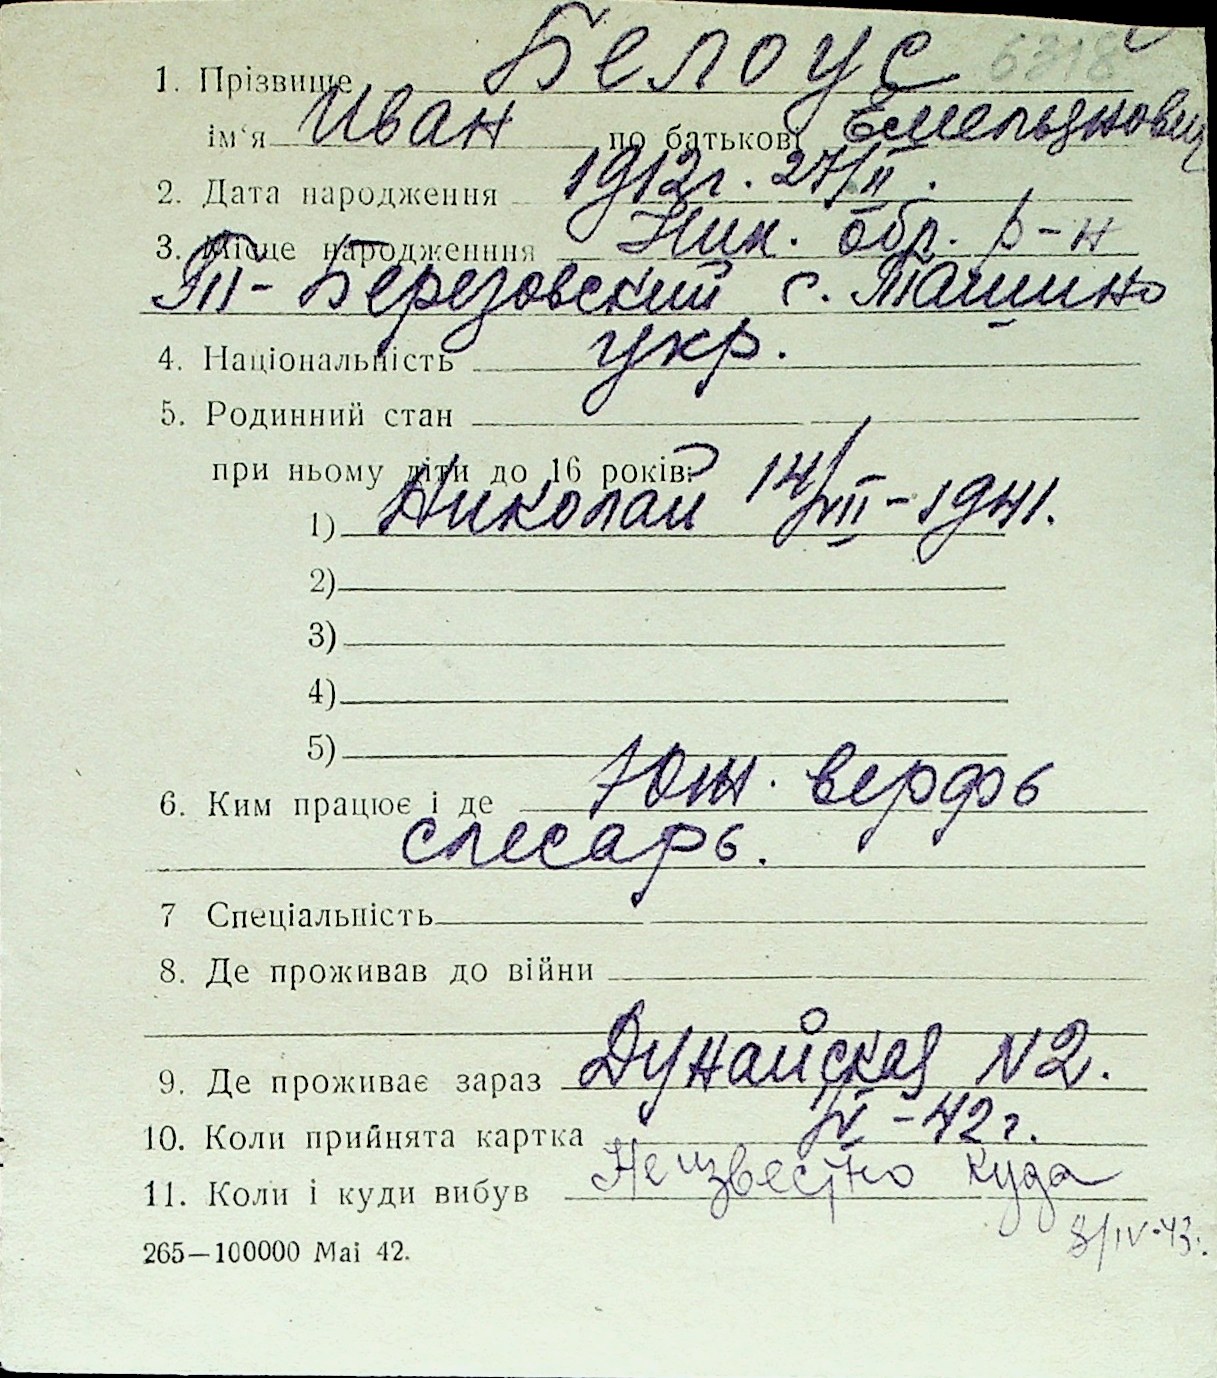 6318
1. Прізвище Белоус
ім'я Иван по батькові Емельянович
2. Дата народження 1912г. 27/II.
3. Місце народженння Ник. обл. р-н
Т- Березовский с. Ташино
4. Національність укр.
5. Родинний стан
при ньому діти до 16 років:
1) Николай 14/VII-1941.
2)
3)
4)
5)
6. Ким працює і де Юж. верфь
слесарь.
7 Спеціальність
8. Де проживав до війни
9. Де проживає зараз Дунайская N2.
10. Коли прийнята картка IV-42г.
11. Коли і куди вибув Неизвестно куда
8/IV-43.
265—100000 Mai 42.